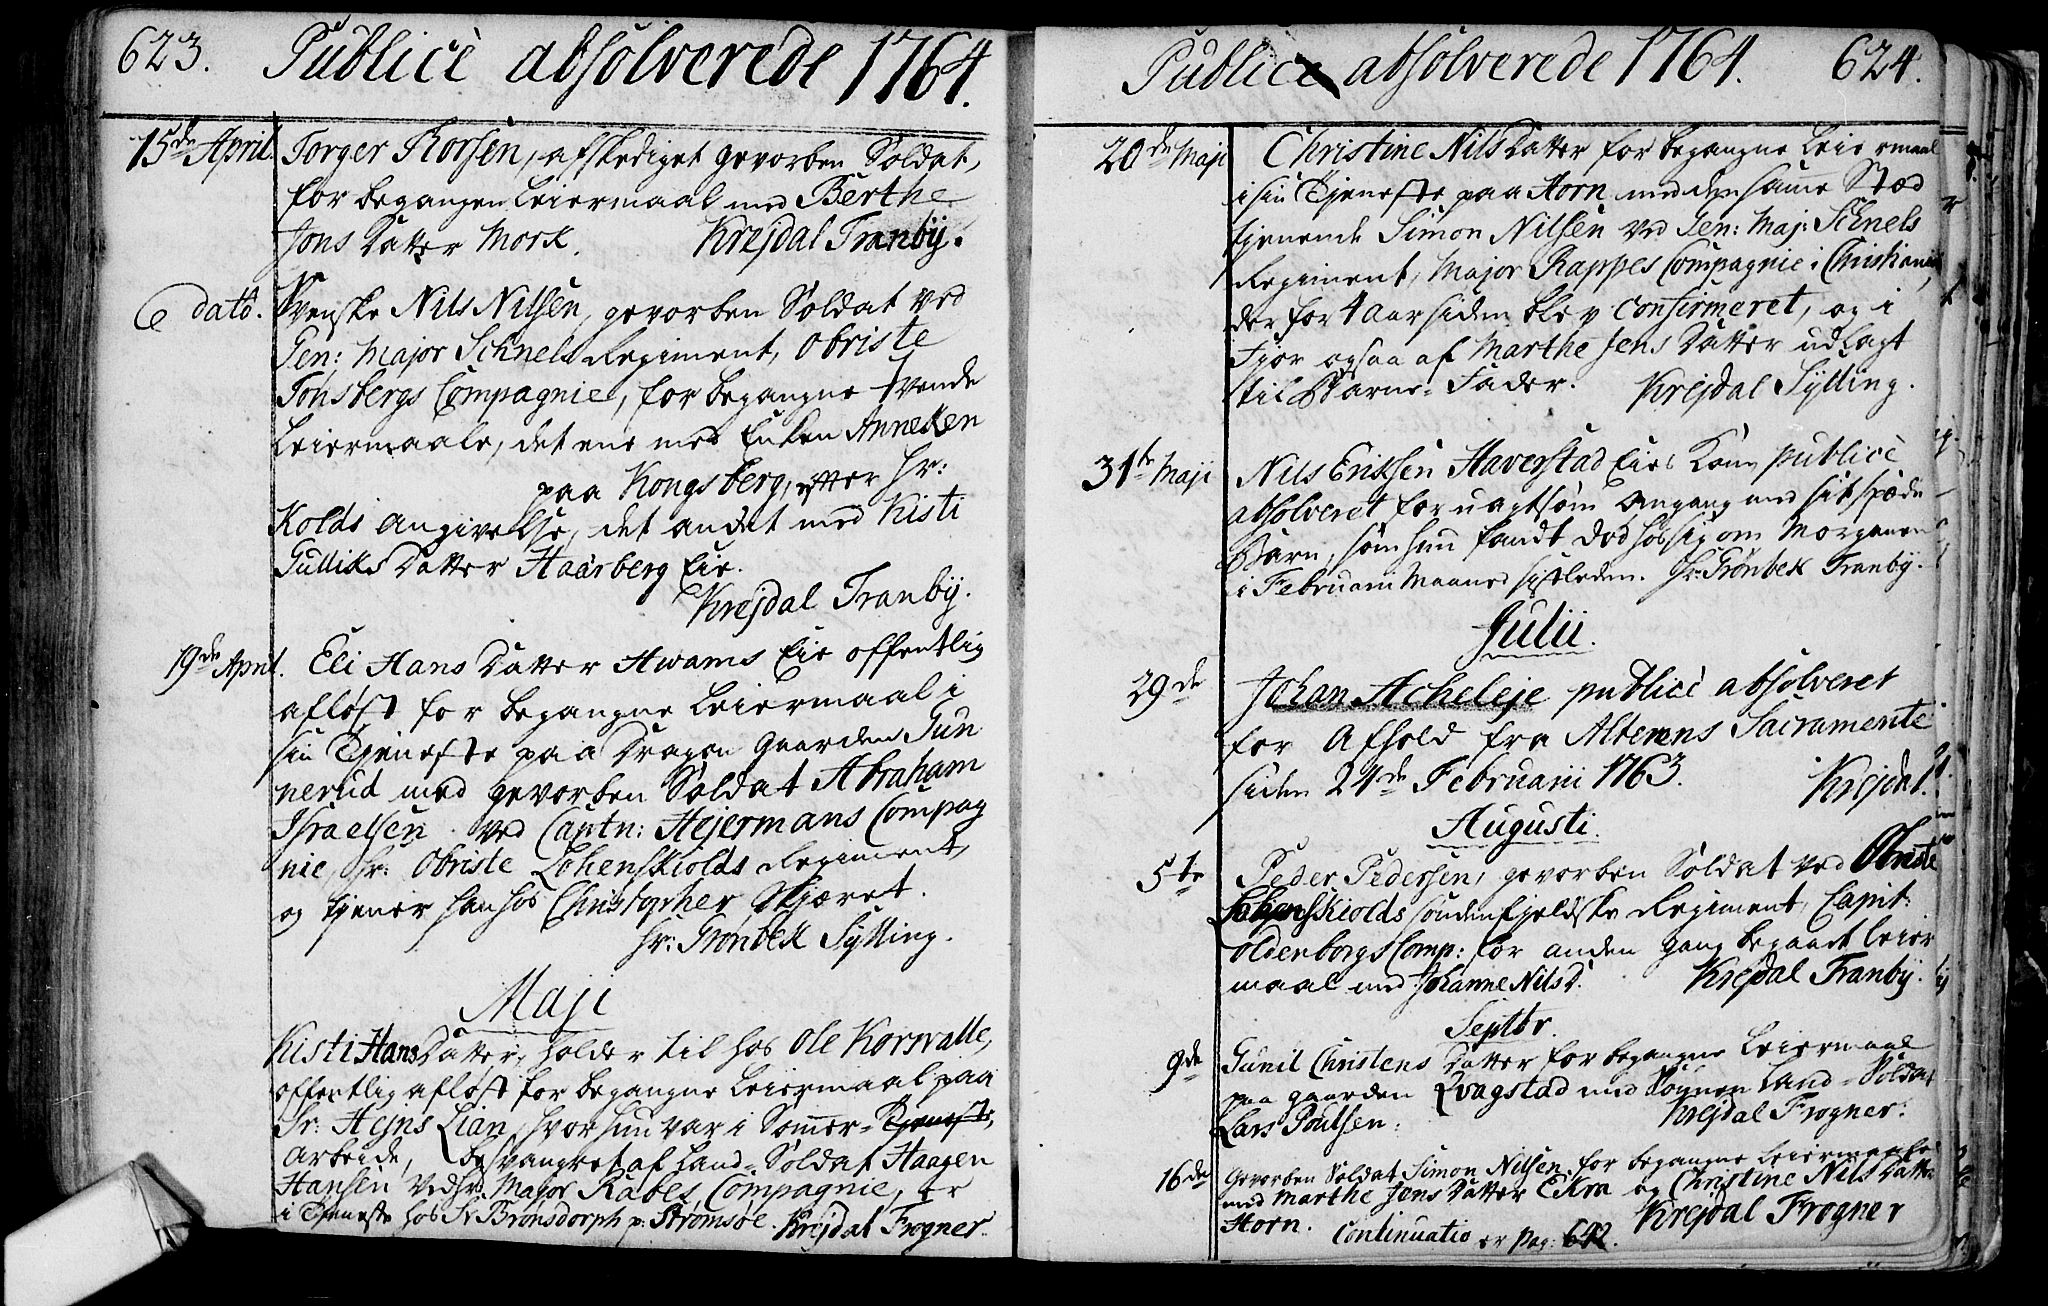 623. Publicè absolverede 1764.
15de April. Torger Thorsen, afskediget gevorben Soldat,
for begangen Leiermaal med Berthe
Jons Datter Mork. Krejdal Tranby.
dato. Svenske Nils Nilsen, gevorben Soldat ved
Gen: Major Schnels Regiment, Obriste
Tonsbergs Compagnie, for begangne tvende
Leiermaale, det ene med Enken Anneken
paa Kongsberg, efter Hr:
Kolds angivelse, det andet med Kisti
Gulliks Datter Haarberg Eie.
Krejdal Tranby.
19de April. Eli Hans Datter Hwams Eie offentlig
afløst for begangne Leiermaal i
sin Tjeneste paa Dragon Gaarden Gun
nerud med gevorben Soldat Abraham
Israelsen ved Captn: Hejermans Compag
nie, Hr: Obriste Lohenskiolds Regiment,
og tjener han hos Christopher Skjæret.
Hr: Grønbek Sylling.
Maji
Kisti Hans Datter, holder til hos Ole Korsvalle,
offentlig afløst for begangne Leiermaal paa
Sr: Hejns Lian, hvor hun var i Sommer-Tjeneste,
Arbeide, besvangret af Land-Soldat Haagen
Hansen ved Hr: Major Rabes Compagnie, er
i Tjeneste hos Sr Brønsdorph p: Strømsøe. Krejdal Frogner.
Publice absolverede 1764. 624.
20de Maji Christine Nils Datter for begangne Leiermaal
i sin Tjeneste paa Horn med den samme Sted
tjenende Simon Nilsen ved Gen: Maj: Schnels
Regiment, Major Rappes Compagnie i Christiania,
der for 4 Aar siden blev Confirmeret, og i
Fjor ogsaa af Marthe Jens Datter udlagt
til Barne-Fader. Krejdal Sylling.
31te Maji Nils Erissen Haverstad Eies Kone publicè
absolveret for uagtsom Omgang med sit spæde
Barn, som hun fandt død hos sig om Morgenen
i Februarii Maaned sistleden. Hr: Grønbek Tranby.
Julii.
29de Johan Acheleje publicè absolveret
for Afhold fra Alterens Sacramente
siden 24de Februarii 1763. Krejdal.
Augusti.
5te Peder Pedersen, gevorben Soldat ved Obriste
Lohenskiolds søndenfjeldske Regiment, Capit:
Oldenborgs Comp: for anden gang begaaet Leier
maal med Johanne Nils D. Krejdal Tranby.
Septbr.
9de Gunil Christens Datter for begangne Leiermaal
paa Gaarden Qvagstad med Land-Soldat
Lars Poulsen. Krejdal Frogner.
16de Gevorben Soldat Simon Nilsen for begangne Leiermaale
med Marthe Jens Datter Ekra og Christine Nils Datter
Horn. Krejdal Frogner
Continuatio er pag: 642.